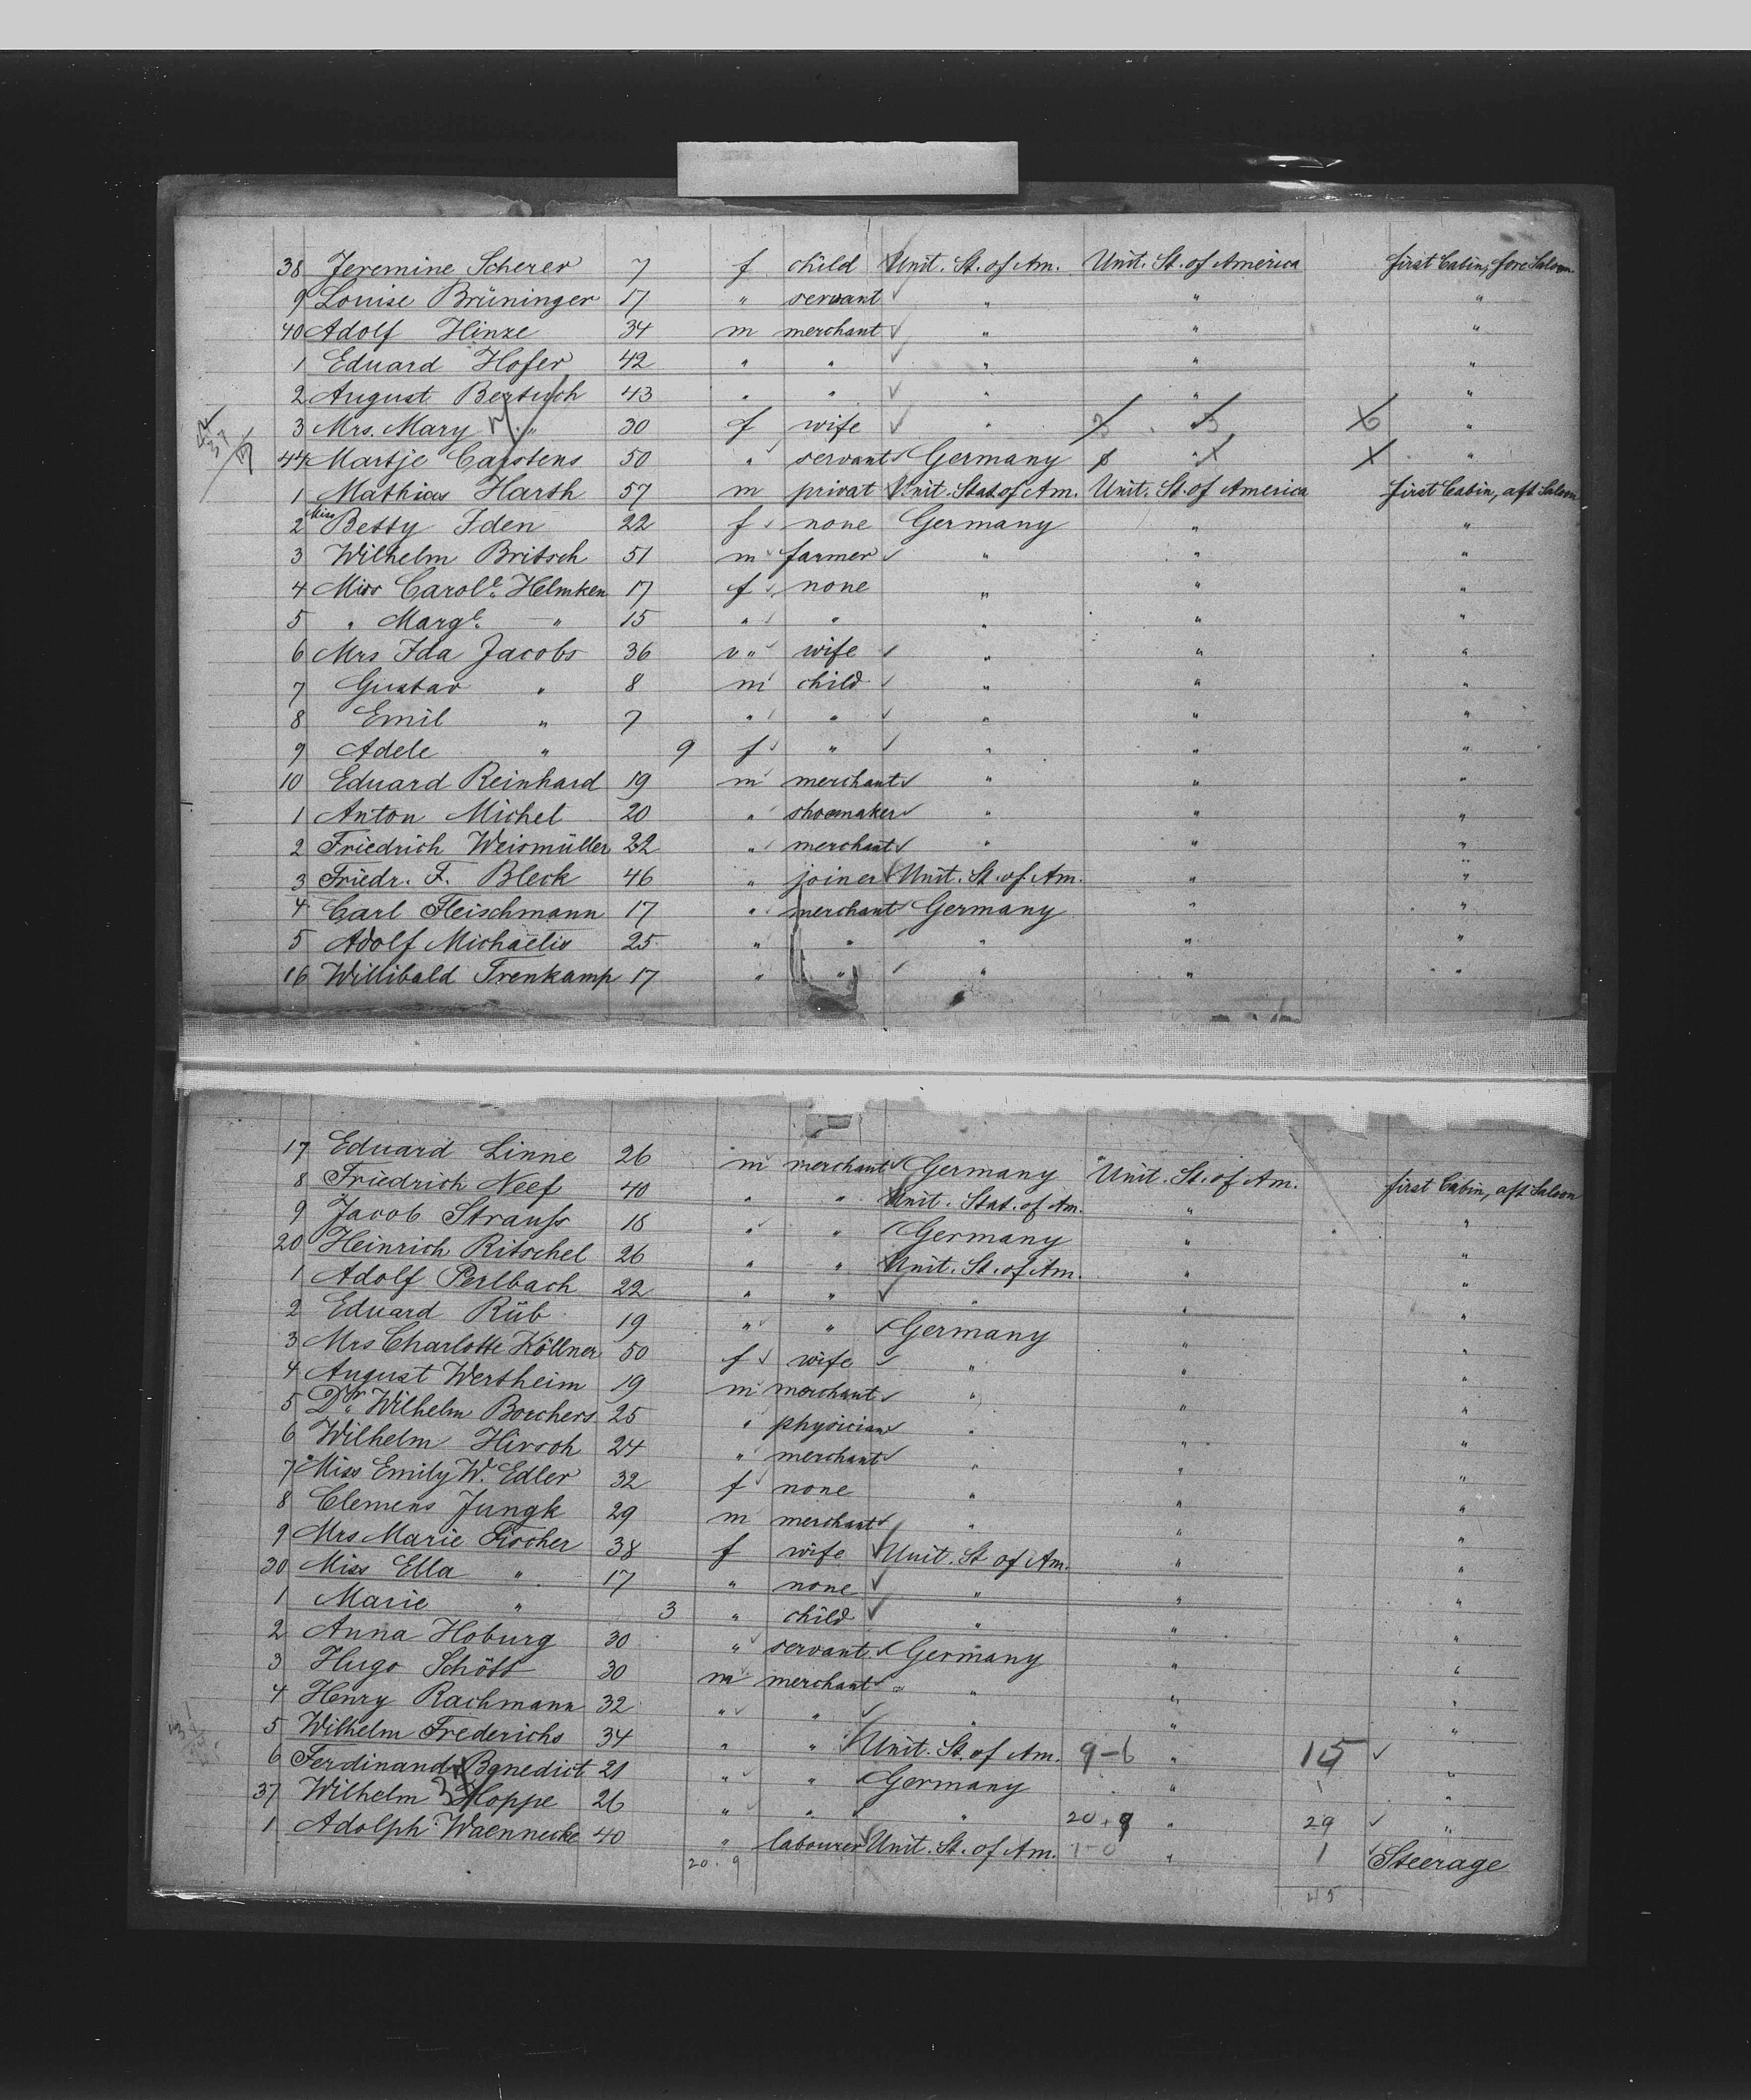 38 Jeremine Scherer 7 f child Unit. St. of Am. Unit. St. of America first Cabin, fore Saloon
9 Louise Brüninger 17 " servant " " "
40 Adolf Hinze 34 m merchant " " "
1 Eduard Hofer 42 " " " " "
2 August Bertsch 43 " " " " "
3 Mrs. Mary " 30 f wife " "
44 Martje Carstens 50 " servant Germany " "
1 Mathias Harth 57 m privat Unit. Stat. of Am. Unit. St. of America first Cabin, aft Saloon
2 Miss Betty Iden 22 f none Germany " "
3 Wilhelm Britsch 51 m farmer " " "
4 Miss Carole. Helmken 17 f none " " "
5 " Margt. " 15 " " " " "
6 Mrs Ida Jacobs 36 " wife " " "
7 Gustav " 8 m child " " "
8 Emil " 7 " " " " "
9 Adele " 9 f " " " "
10 Eduard Reinhard 19 m merchant " " "
1 Anton Michel 20 " shoemaker " " "
2 Friedrich Weismüller 22 " merchant " " "
3 Friedr. F. Bleck 46 " joiner Unit. St. of Am. " "
4 Carl Fleischmann 17 " merchant Germany " "
5 Adolf Michaelis 25 " " " " "
16 Willibald Trenkamp 17 " " " " "
17 Eduard Linne 26 m merchant Germany Unit. St. of Am. first Cabin, aft Saloon
8 Friedrich Neef 40 " " Unit. Stat. of Am. " "
9 Jacob Strauß 18 " " Germany " "
20 Heinrich Ritschel 26 " " Unit. St. of Am. " "
1 Adolf Perlbach 22 " " " " "
2 Eduard Rüb 19 " " Germany " "
3 Mrs Charlotte Köllner 50 f wife " " "
4 August Wertheim 19 m merchant " " "
5 Dr. Wilhelm Borchers 25 " physician " " "
6 Wilhelm Hirsch 24 " merchant " " "
7 Miss Emily W. Edler 32 f none " " "
8 Clemens Jungk 29 m merchant " " "
9 Mrs Marie Fischer 38 f wife Unit. St. of Am. " "
30 Miss Ella " 17 " none " " "
1 Marie " 3 " child " " "
2 Anna Hoburg 30 " servant Germany " "
3 Hugo Schött 30 m merchant " " "
4 Henry Rachmann 32 " " " " "
5 Wilhelm Frederichs 34 " " Unit. St. of Am. 9-6 " 15 "
6 Ferdinand Benedict 21 " " Germany " "
37 Wilhelm Hoppe 26 " " " 20.9 " 29 "
1 Adolph Waennecke 40 " labourer Unit. St. of Am. 1-0 " 1 Steerage
20.9 45